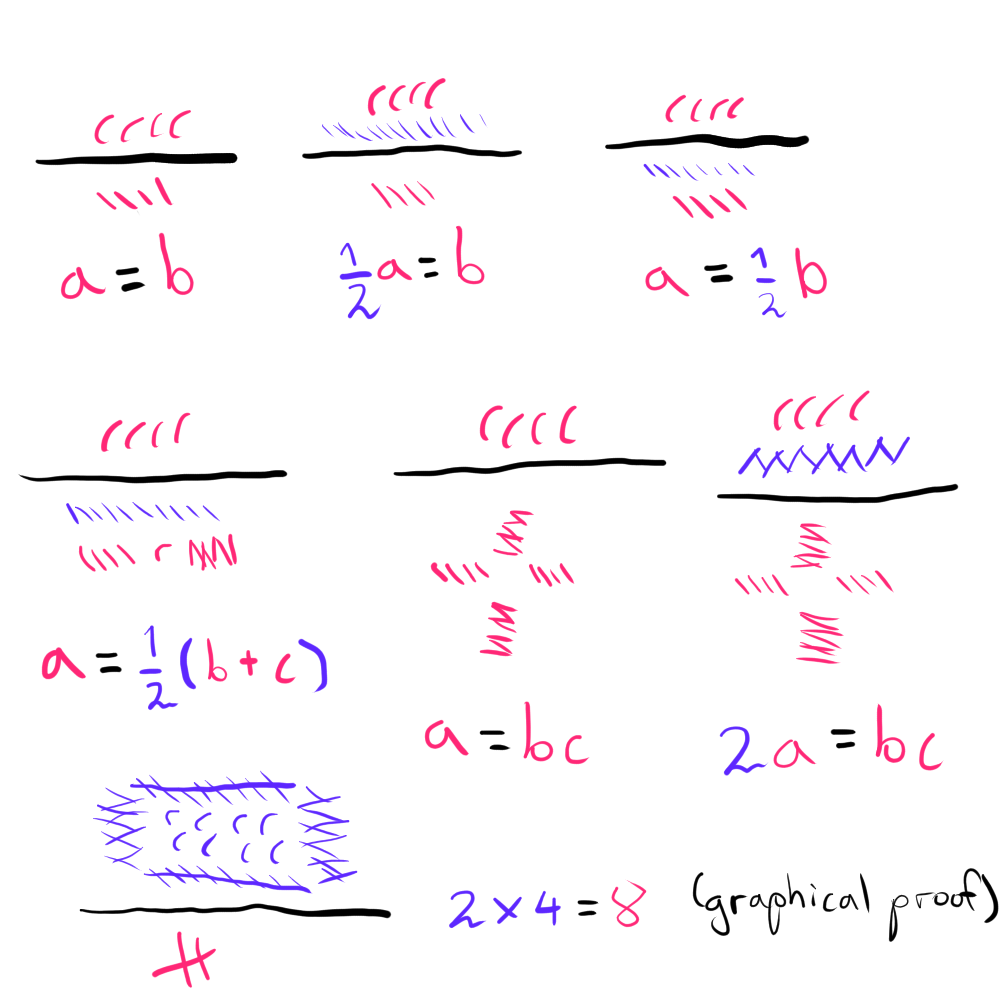 a = b
½a = b
a = ½b
a = ½(b + c)
a = bc
2a = bc
2 × 4 = 8 (graphical proof)